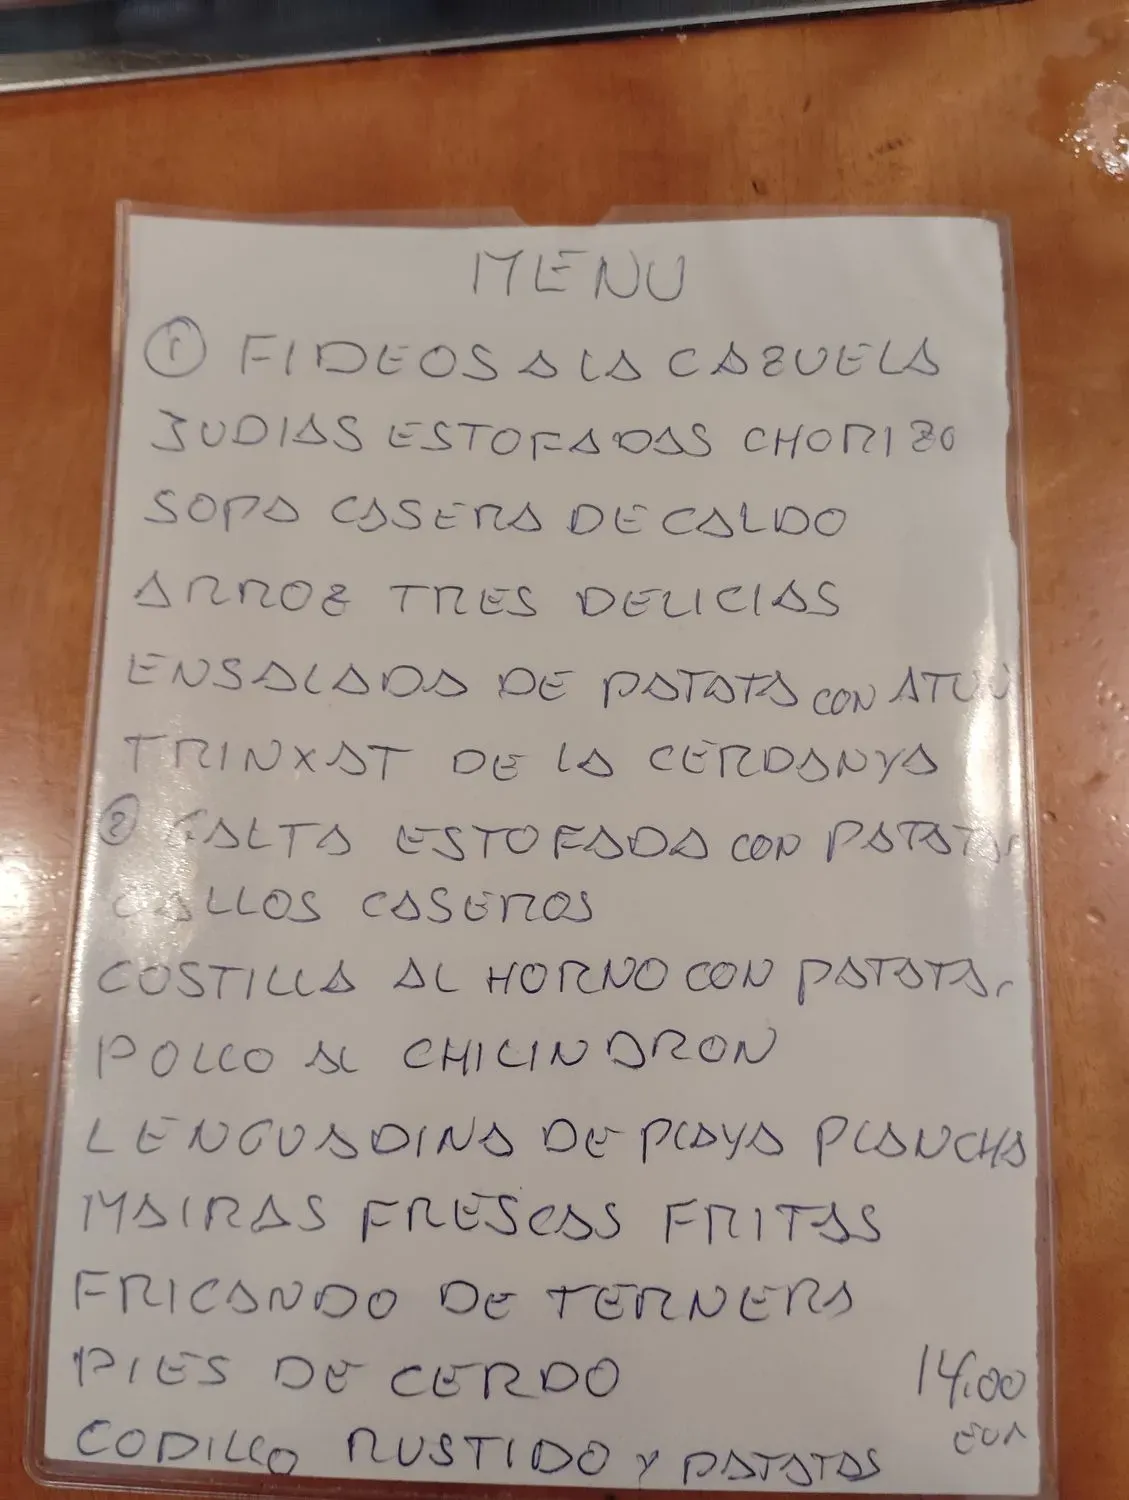 MENU
① FIDEOS A LA CAZUELA
JUDIAS ESTOFADAS CHORIZO
SOPA CASERA DE CALDO
ARROZ TRES DELICIAS
ENSALADA DE PATATA CON ATUN
TRINXAT DE LA CERDANYA
② GALTA ESTOFADA CON PATATAS
CALLOS CASEROS
COSTILLA AL HORNO CON PATATAS
POLLO AL CHILINDRON
LENGUADINA DE PLAYA PLANCHA
MAIRAS FRESCAS FRITAS
FRICANDO DE TERNERA
PIES DE CERDO 14.00
EUR
CODILLO RUSTIDO Y PATATAS